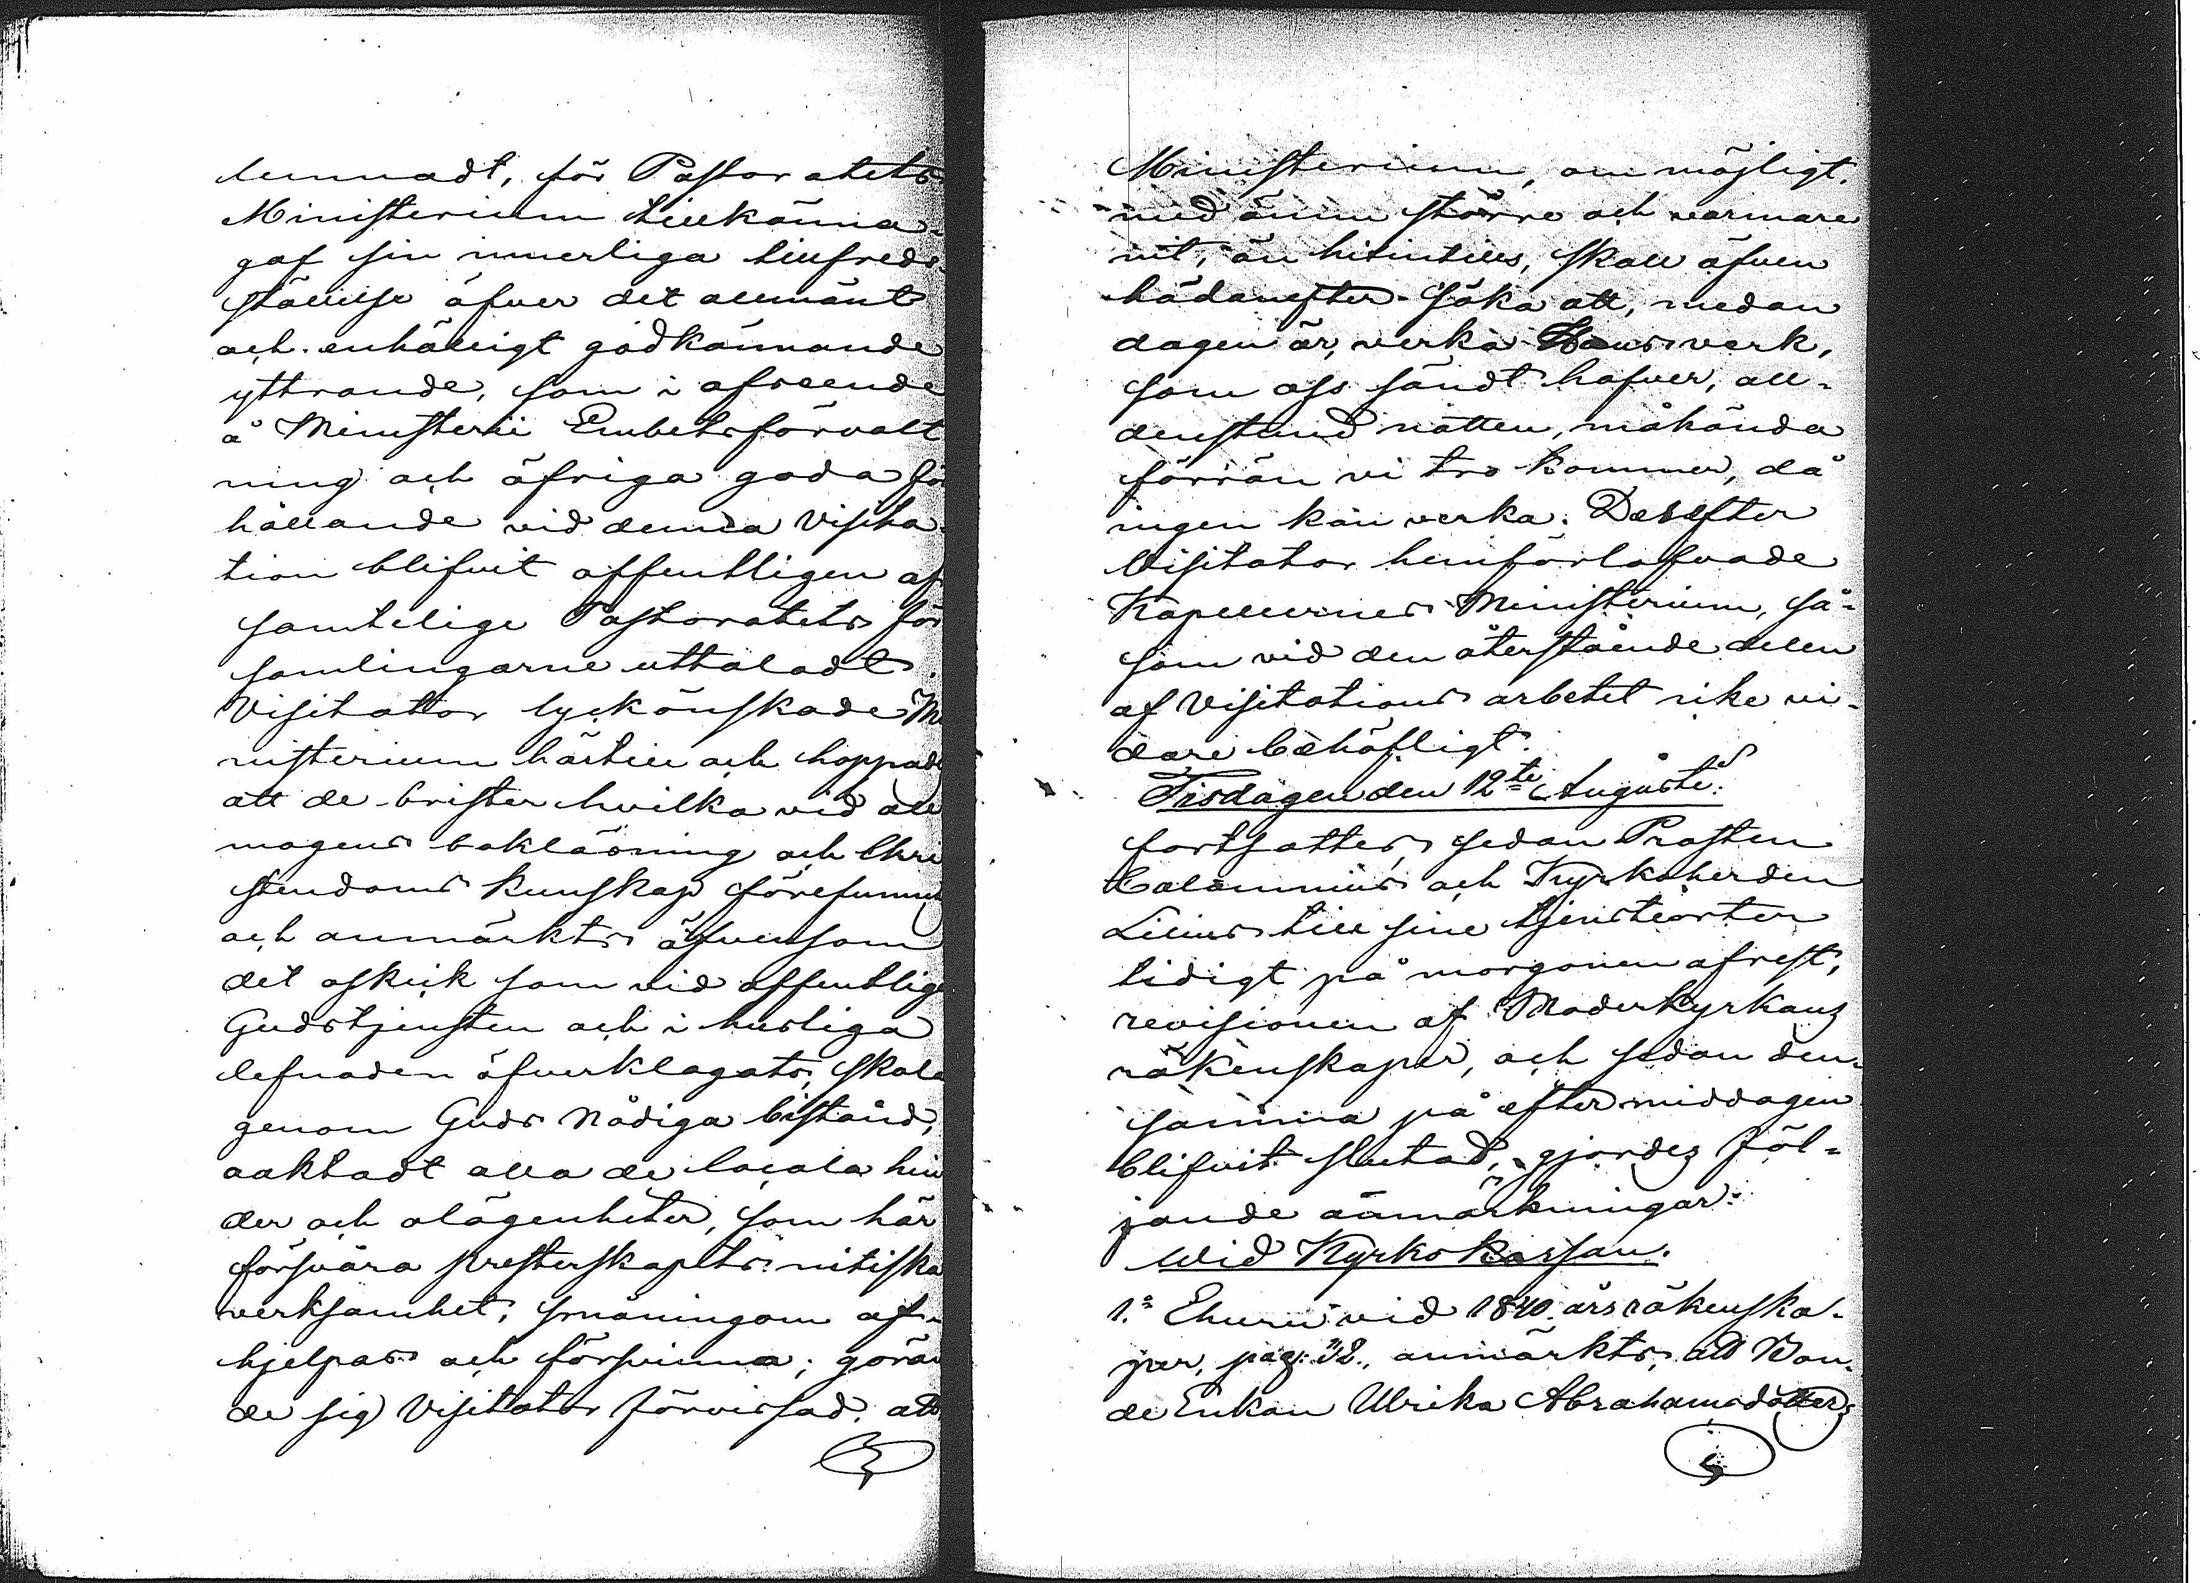 lemnadt, för Pastoratets
Ministerium tillkänna-
gaf sin innerliga tillfreds-
ställelse öfver det allmänt
och enhälligt godkännande
yttrande, som i afseende
å Ministerii Embetsförvalt
ning och öfriga goda för
hållande vid denna Visita
tion blifvit offentligen af
samtelige Pastoratets för
samlingarne uttaladt.
Visitator lyckönskade Mi
nisterium härtill och hoppade
att de brister hvilka vid all
mogens bokläsning och Chri
stendoms kunskap förefunnits
och anmärkts äfvensom
det oskick som vid offentliga
Gudstjensten och i husliga
lefnaden öfverklagats, skola
genom Guds Nådiga bistånd,
oaktadt alla de locala hin
der och olägenheter, som här
försvåra Presterskapets nitiska
verksamhet, småningom af-
hjelpas och försvinna; göran
de sig Visitator förvissad, att
Ministerium, om möjligt.
med ännu större och varmare
nit, än hitintills, skall äfven
hädanefter söka att, medan
dagen är, verka Hans verk,
som oss sändt hafver, all-
denstund natten, måhända
förrän vi tro kommer, då
ingen kan verka. Derefter
Visitator hemförlofvade
Kapellernes Ministerium, så-
som vid den återstående delen
af Visitations arbetet icke vi-
dare behöfligt.
Tisdagen den 12te Augusti
fortsattes, sedan Prosten
Calamnius och Kyrkoherden
Lilius till sine tjensteorter
tidigt på morgonen afrest,
revisionen af Moderkyrkans
räkenskaper, och sedan den-
samma på eftermiddagen
blifvit slutad, gjordes föl-
jande anmärkningar:
Wid Kyrkokassan.
1:o Ehuru vid 1840 års räkenska-
per, pag: 32., anmärkts, att Bon-
de Enkan Ulrika Abrahamsdotters